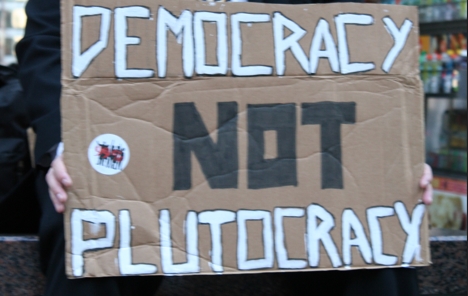 DEMOCRACY
NOT
PLUTOCRACY